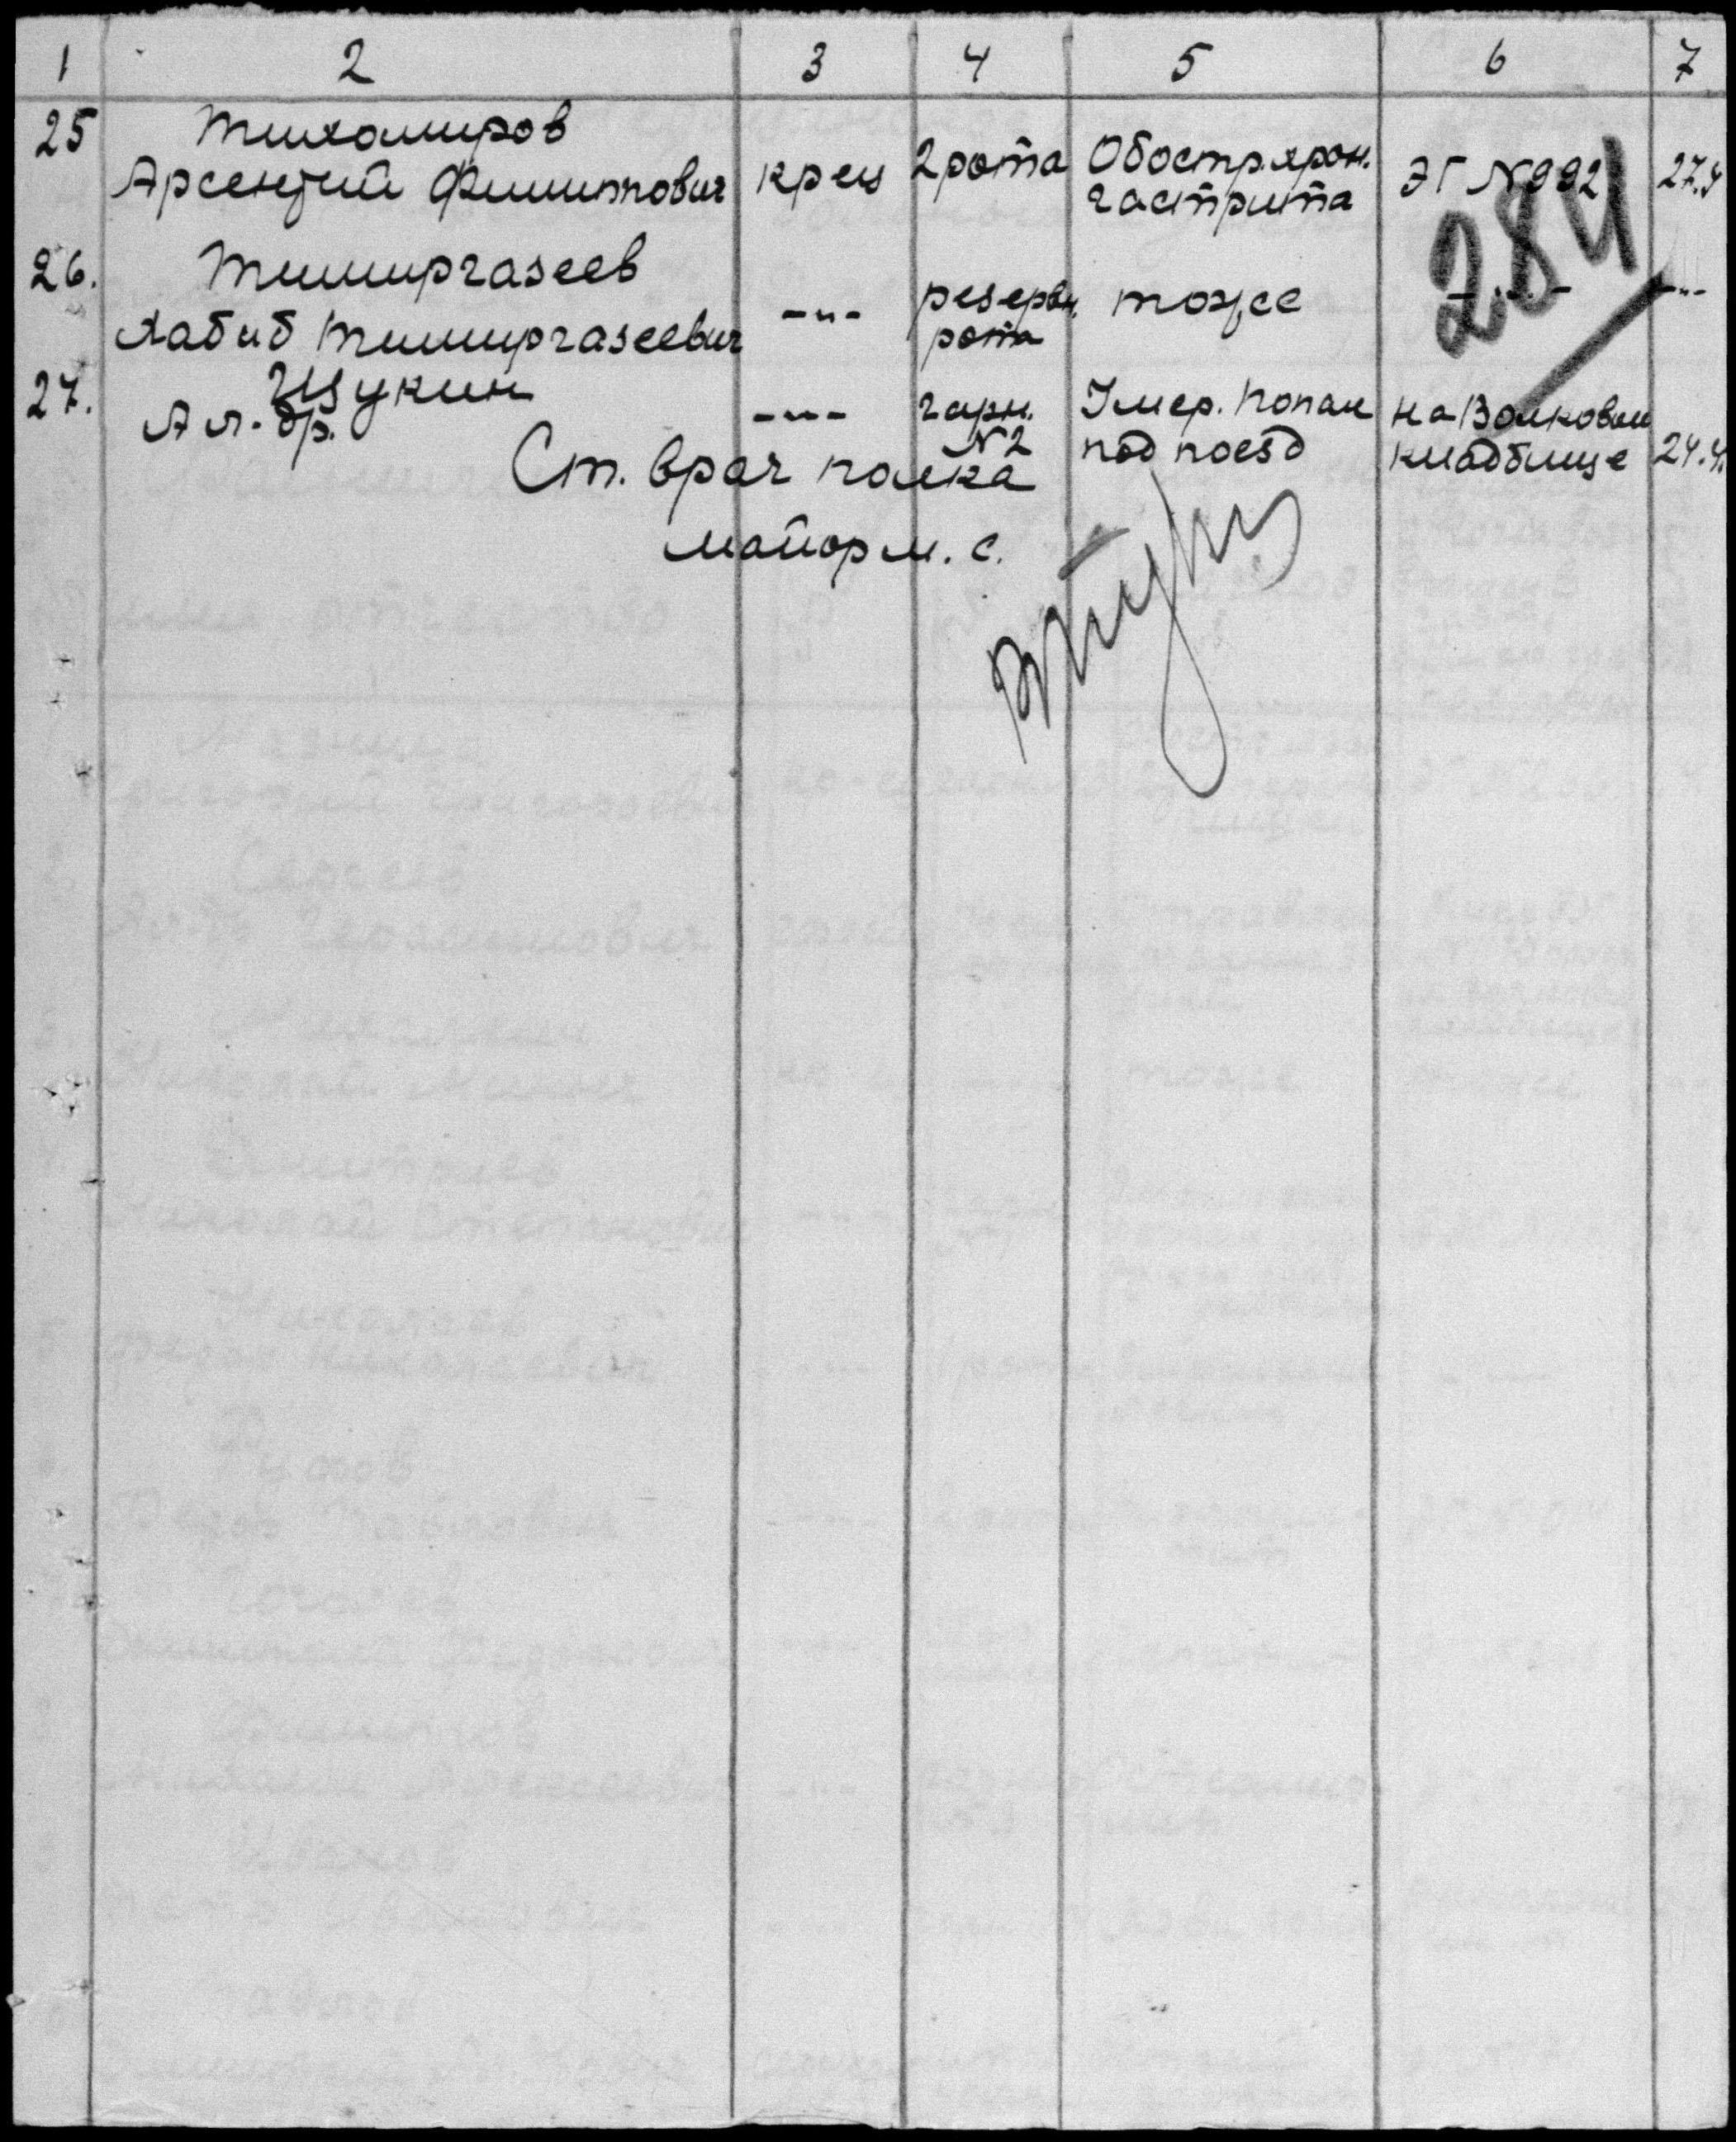 1 2 3 4 5 6 7
25 Тихомиров
Арсентий Филиппович кр-ец 2 рота Обостр. хрон. гастрита ЭГ №992 27.4
284
26. Тимиргазеев
Хабиб Тимиргазеевич -"- резервн. рота тоже -"- -"-
27. Щукин
Ал-др. -"- гарн. №2 Умер. Попал под поезд на Волковом кладбище 24.4.
Ст. врач полка
майор м. с.